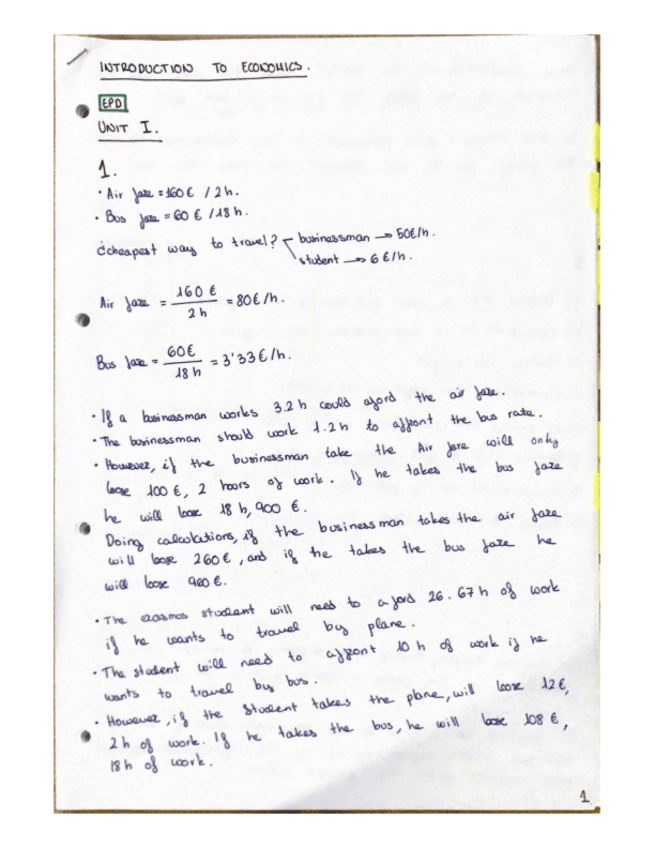 INTRODUCTION TO ECONOMICS.
EPD
UNIT I.
1.
· Air fare = 160 € / 2 h.
· Bus fare = 60 € / 18 h.
¿cheapest way to travel? businessman → 50€/h.
student → 6 €/h.
Air fare = 160 € / 2 h = 80 €/h.
Bus fare = 60 € / 18 h = 3'33 €/h.
· If a businessman works 3.2 h could aford the air fare.
· The businessman should work 1.2 h to affront the bus rate.
· However, if the businessman take the Air fare will only
loose 100 €, 2 hours of work. If he takes the bus fare
he will loose 18 h, 900 €.
Doing calculations, if the businessman takes the air fare
will loose 260 €, and if he takes the bus fare he
will loose 960 €.
· The erasmus student will need to aford 26.67 h of work
if he wants to travel by plane.
· The student will need to affront 10 h of work if he
wants to travel by bus.
· However, if the student takes the plane, will loose 12 €,
2 h of work. If he takes the bus, he will loose 108 €,
18 h of work.
1